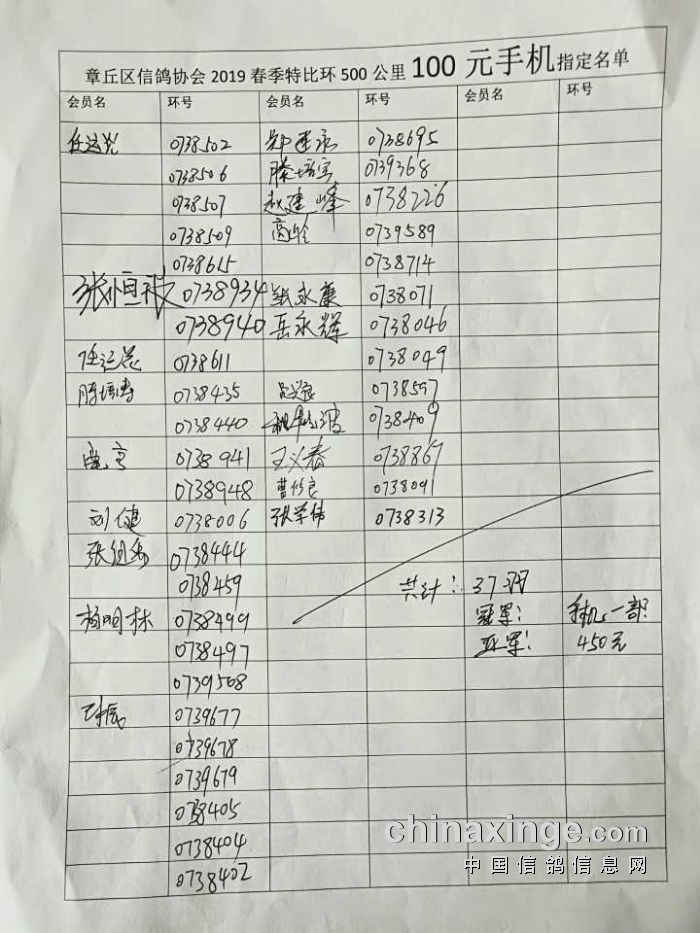 章丘区信鸽协会2019春季特比环500公里100元手机指定名单
会员名 环号 会员名 环号 会员名 环号
0738502 0738695
0738506 滕培宝 0739368
0738507 赵建峰 0738226
0738509 0739589
0738615 0738714
0738934 张永康 0738071
0738940 岳永辉 0738046
0738611 0738049
滕培涛 0738435 0738597
0738440 0738409
0738941 王义春 0738867
0738948 0738091
刘健 0738006 张学伟 0738313
0738444
0738459 共计: 37羽
杨明林 0738499 冠军: 手机一部
0738497 亚军: 450元
0739508
0739677
0739678
0739679
0738405
0738404
0738402
chinaxinge.com
中国信鸽信息网